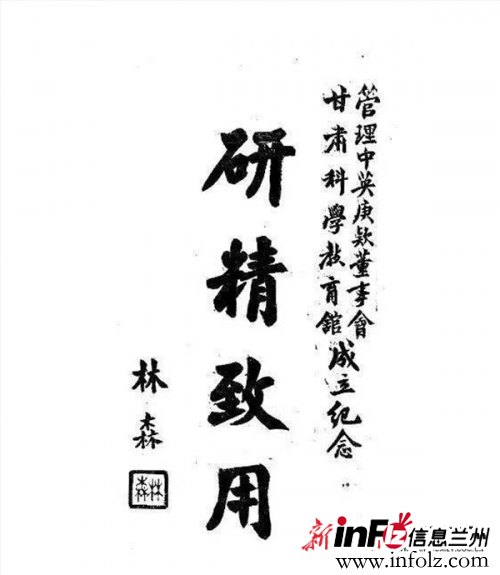 管理中英庚欵董事會
甘肅科學教育舘
成立纪念
研精致用
林森
林森
新 inFLZ 信息兰州
www.infolz.com